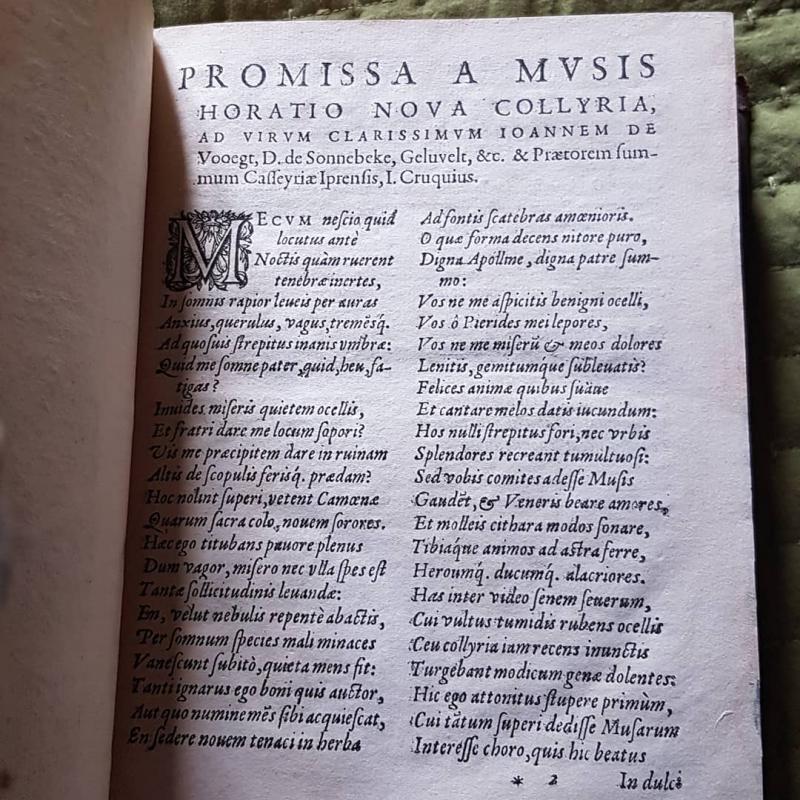 PROMISSA A MVSIS
HORATIO NOVA COLLYRIA,
AD VIRVM CLARISSIMVM IOANNEM DE
Vooegt, D. de Sonnebeke, Geluvelt, &c. & Prætorem ſum-
mum Caſſeyriæ Iprenſis, I. Cruquius.
MECVM neſcio quid
locutus antè
Noctis quàm ruerent
tenebræ inertes,
In ſomnis rapior leueis per auras
Anxius, querulus, vagus, tremẽsq́.
Ad quoſuis ſtrepitus inanis vmbræ:
Quid me ſomne pater, quid, heu, fa-
tigas?
Inuides miſeris quietem ocellis,
Et fratri dare me locum ſopori?
Vis me præcipitem dare in ruinam
Altis de ſcopulis feriſq́. prædam?
Hoc nolint ſuperi, vetent Camœnæ
Quarum ſacra colo, nouem ſorores.
Hæc ego titubans pauore plenus
Dum vagor, miſero nec vlla ſpes eſt
Tantæ ſollicitudinis leuandæ:
En, velut nebulis repentè abactis,
Per ſomnum ſpecies mali minaces
Vaneſcunt ſubitò, quieta mens fit:
Tanti ignarus ego boni quis auctor,
Aut quo numine mẽs ſibi acquieſcat,
En ſedere nouem tenaci in herba
Ad fontis ſcatebras amœnioris.
O quæ forma decens nitore puro,
Digna Apolline, digna patre ſum-
mo:
Vos ne me aſpicitis benigni ocelli,
Vos ô Pierides mei lepores,
Vos ne me miſerũ & meos dolores
Lenitis, gemitumq́ue ſubleuatis?
Felices animæ quibus ſuäue
Et cantare melos datis iucundum:
Hos nulli ſtrepitus fori, nec vrbis
Splendores recreant tumultuoſi:
Sed vobis comites adeſſe Muſis
Gaudẽt, & Veneris beare amores,
Et molleis cithara modos ſonare,
Tibiaq́ue animos ad aſtra ferre,
Heroumq́. ducumq́. alacriores.
Has inter video ſenem ſeuerum,
Cui vultus tumidis rubens ocellis
Ceu collyria iam recens inunctis
Turgebant modicum genæ dolentes:
Hic ego attonitus ſtupere primùm,
Cui tãtum ſuperi dediſſe Muſarum
Intereſſe choro, quis hic beatus
* 2 In dulci